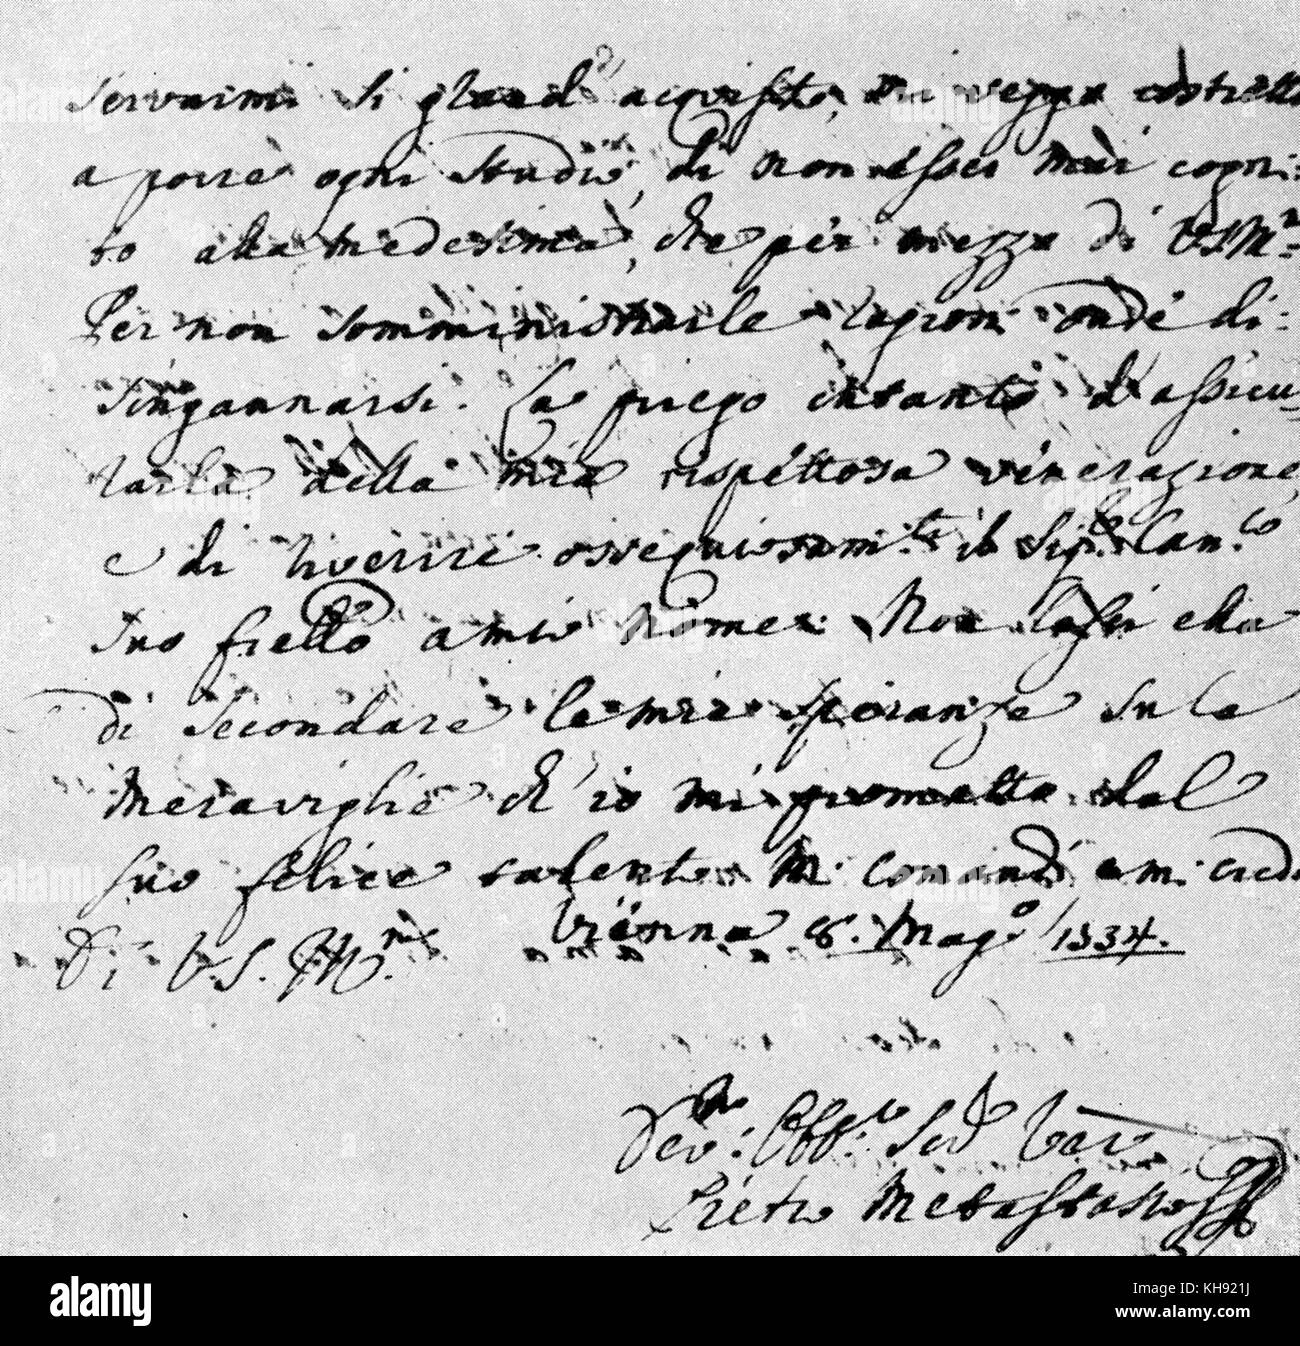 servarmi si grand' acquisto, mi veggo costretto
a porre ogni studio, di non esser mai cogni-
to alla medesima, che per mezzo di V.S. Mta
Per non somministrarle ragioni onde di-
singannarsi. La priego intanto d'assicu-
rarla della mia rispettosa venerazione,
e di riverire ossequiosamte il Sigr
suo frello a mio nome. Non lasci ella
di secondare le mie speranze su le
meraviglie ch'io mi prometto dal
suo felice talento. Mi comandi e mi creda
Di V.S. M Vienna 8. Magº 1734.
Devmo Obblo Serd Ver
Pietro Metastasio
alamy
Image ID: KH921J
www.alamy.com